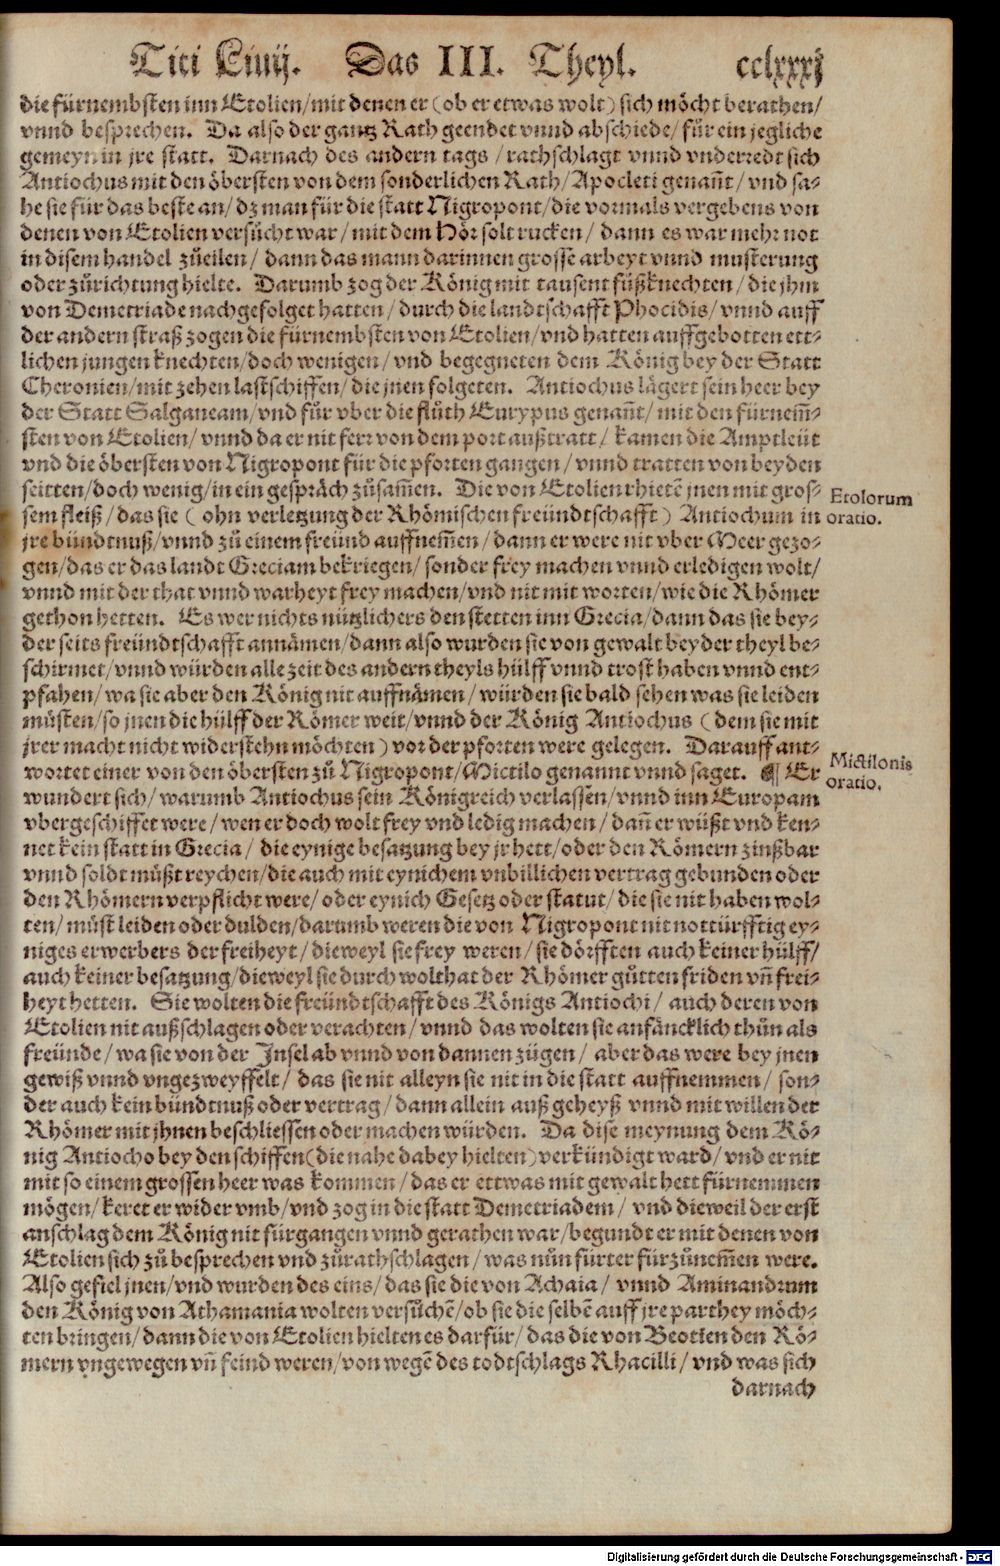 Titi Liuij. Das III. Theyl. cclxxxj
die fürnembsten inn Etolien/mit denen er (ob er etwas wolt) sich möcht berathen/
vnnd besprechen. Da also der gantz Rath geendet vnnd abschiede/für ein jegliche
gemeyn in jre statt. Darnach des andern tags/rathschlagt vnnd vnderredt sich
Antiochus mit den öbersten von dem sonderlichen Rath/Apocleti genañt/vnd sa⸗
he sie für das beste an/dz man für die statt Nigropont/die vormals vergebens von
denen von Etolien versücht war/mit dem Hör solt rucken/dann es war mehr not
in disem handel zůeilen/dann das mann darinnen grosse arbeyt vnnd musterung
oder zůrichtung hielte. Darumb zog der König mit tausent fůßknechten/die jhm
von Demetriade nachgefolget hatten/durch die landtschafft Phocidis/vnnd auff
der andern straß zogen die fürnembsten von Etolien/vnd hatten auffgebotten ett⸗
lichen jungen knechten/doch wenigen/vnd begegneten dem König bey der Statt
Cheronien/mit zehen lastschiffen/die jnen folgeten. Antiochus lägert sein heer bey
der Statt Salganeam/vnd für vber die flůth Eurypus genañt/mit den fürnem̃⸗
sten von Etolien/vnnd da er nit ferr von dem port außtratt/kamen die Amptleüt
vnd die öbersten von Nigropont für die pforten gangen/vnnd tratten von beyden
seitten/doch wenig/in ein gespräch zůsam̃en. Die von Etolien rhietẽ jnen mit gros⸗
sem fleiß/das sie (ohn verletzung der Rhömischen freündtschafft) Antiochum in
jre bündtnuß/vnnd zů einem freünd auffnem̃en/dann er were nit vber Meer gezo⸗
gen/das er das landt Greciam bekriegen/sonder frey machen vnnd erledigen wolt/
vnnd mit der that vnnd warheyt frey machen/vnd nit mit worten/wie die Rhömer
gethon hetten. Es wer nichts nützlichers den stetten inn Grecia/dann das sie bey⸗
der seits freündtschafft annämen/dann also wurden sie von gewalt beyder theyl be⸗
schirmet/vnnd würden alle zeit des andern theyls hülff vnnd trost haben vnnd ent⸗
pfahen/wa sie aber den König nit auffnämen/würden sie bald sehen was sie leiden
müsten/so jnen die hülff der Römer weit/vnnd der König Antiochus (dem sie mit
jrer macht nicht widerstehn möchten) vor der pforten were gelegen. Darauff ant⸗
wortet einer von den öbersten zů Nigropont/Mictilo genannt vnnd saget. ¶ Er
wundert sich/warumb Antiochus sein Königreich verlassen/vnnd inn Europam
vbergeschiffet were/wen er doch wolt frey vnd ledig machen/dañ er wüßt vnd ken⸗
net kein statt in Grecia/die eynige besatzung bey jr hett/oder den Römern zinßbar
vnnd soldt müßt reychen/die auch mit eynichem vnbillichen vertrag gebunden oder
den Rhömern verpflicht were/oder eynich Gesetz oder statut/die sie nit haben wol⸗
ten/müst leiden oder dulden/darumb weren die von Nigropont nit nottürfftig ey⸗
niges erwerbers der freiheyt/dieweyl sie frey weren/sie dörfften auch keiner hülff/
auch keiner besatzung/dieweyl sie durch wolthat der Rhömer gůtten friden vñ frei⸗
heyt hetten. Sie wolten die freündtschafft des Königs Antiochi/auch deren von
Etolien nit außschlagen oder verachten/vnnd das wolten sie anfäncklich thůn als
freünde/wa sie von der Insel ab vnnd von dannen zügen/aber das were bey jnen
gewiß vnnd vngezweyffelt/das sie nit alleyn sie nit in die statt auffnemmen/son⸗
der auch kein bündtnuß oder vertrag/dann allein auß geheyß vnnd mit willen der
Rhömer mit jhnen beschliessen oder machen würden. Da dise meynung dem Kö⸗
nig Antiocho bey den schiffen(die nahe dabey hielten)verkündigt ward/vnd er nit
mit so einem grossen heer was kommen/das er ettwas mit gewalt hett fürnemmen
mögen/keret er wider vmb/vnd zog in die statt Demetriadem/vnd dieweil der erst
anschlag dem König nit fürgangen vnnd gerathen war/begundt er mit denen von
Etolien sich zů besprechen vnd zůrathschlagen/was nůn fürter fürzůnem̃en were.
Also gefiel jnen/vnd wurden des eins/das sie die von Achaia/vnnd Aminandrum
den König von Athamania wolten versůchẽ/ob sie die selbẽ auff jre parthey möch⸗
ten bringen/dann die von Etolien hielten es darfür/das die von Beotien den Rö⸗
mern vngewegen vñ feind weren/von wegẽ des todtschlags Rhacilli/vnd was sich
darnach
Etolorum
oratio.
Mictilonis
oratio.
Digitalisierung gefördert durch die Deutsche Forschungsgemeinschaft - DFG